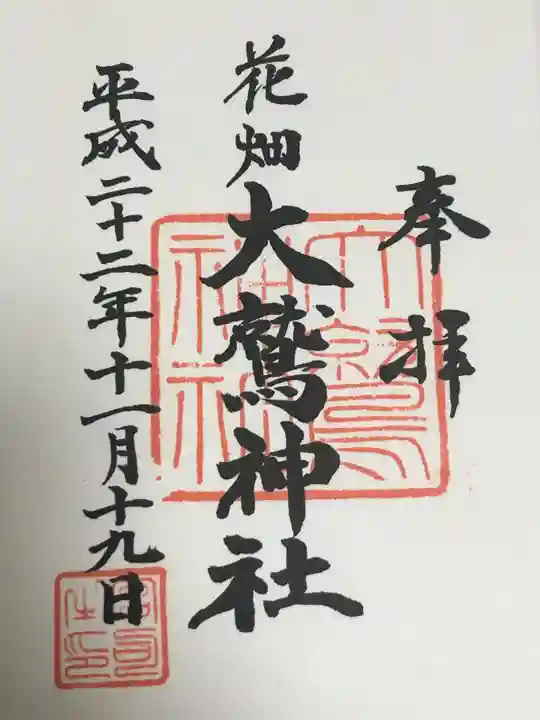 奉拝
花畑大鷲神社
平成二十二年十一月十九日
大鷲
神社